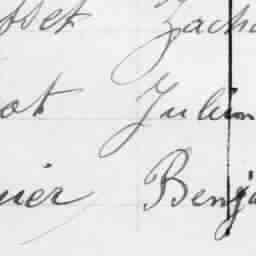 sset Zacha
ot Julien
uier Benja